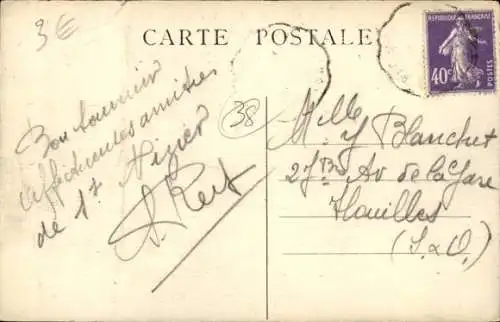 3€
CARTE POSTALE
REPUBLIQUE FRANÇAISE
40c
POSTES
38
Bon souvenir
affectueuses amitiés
de St Nizier
Mlle Y Blanchet
27 Bis Av de la Gare
Houilles
(S & O.)